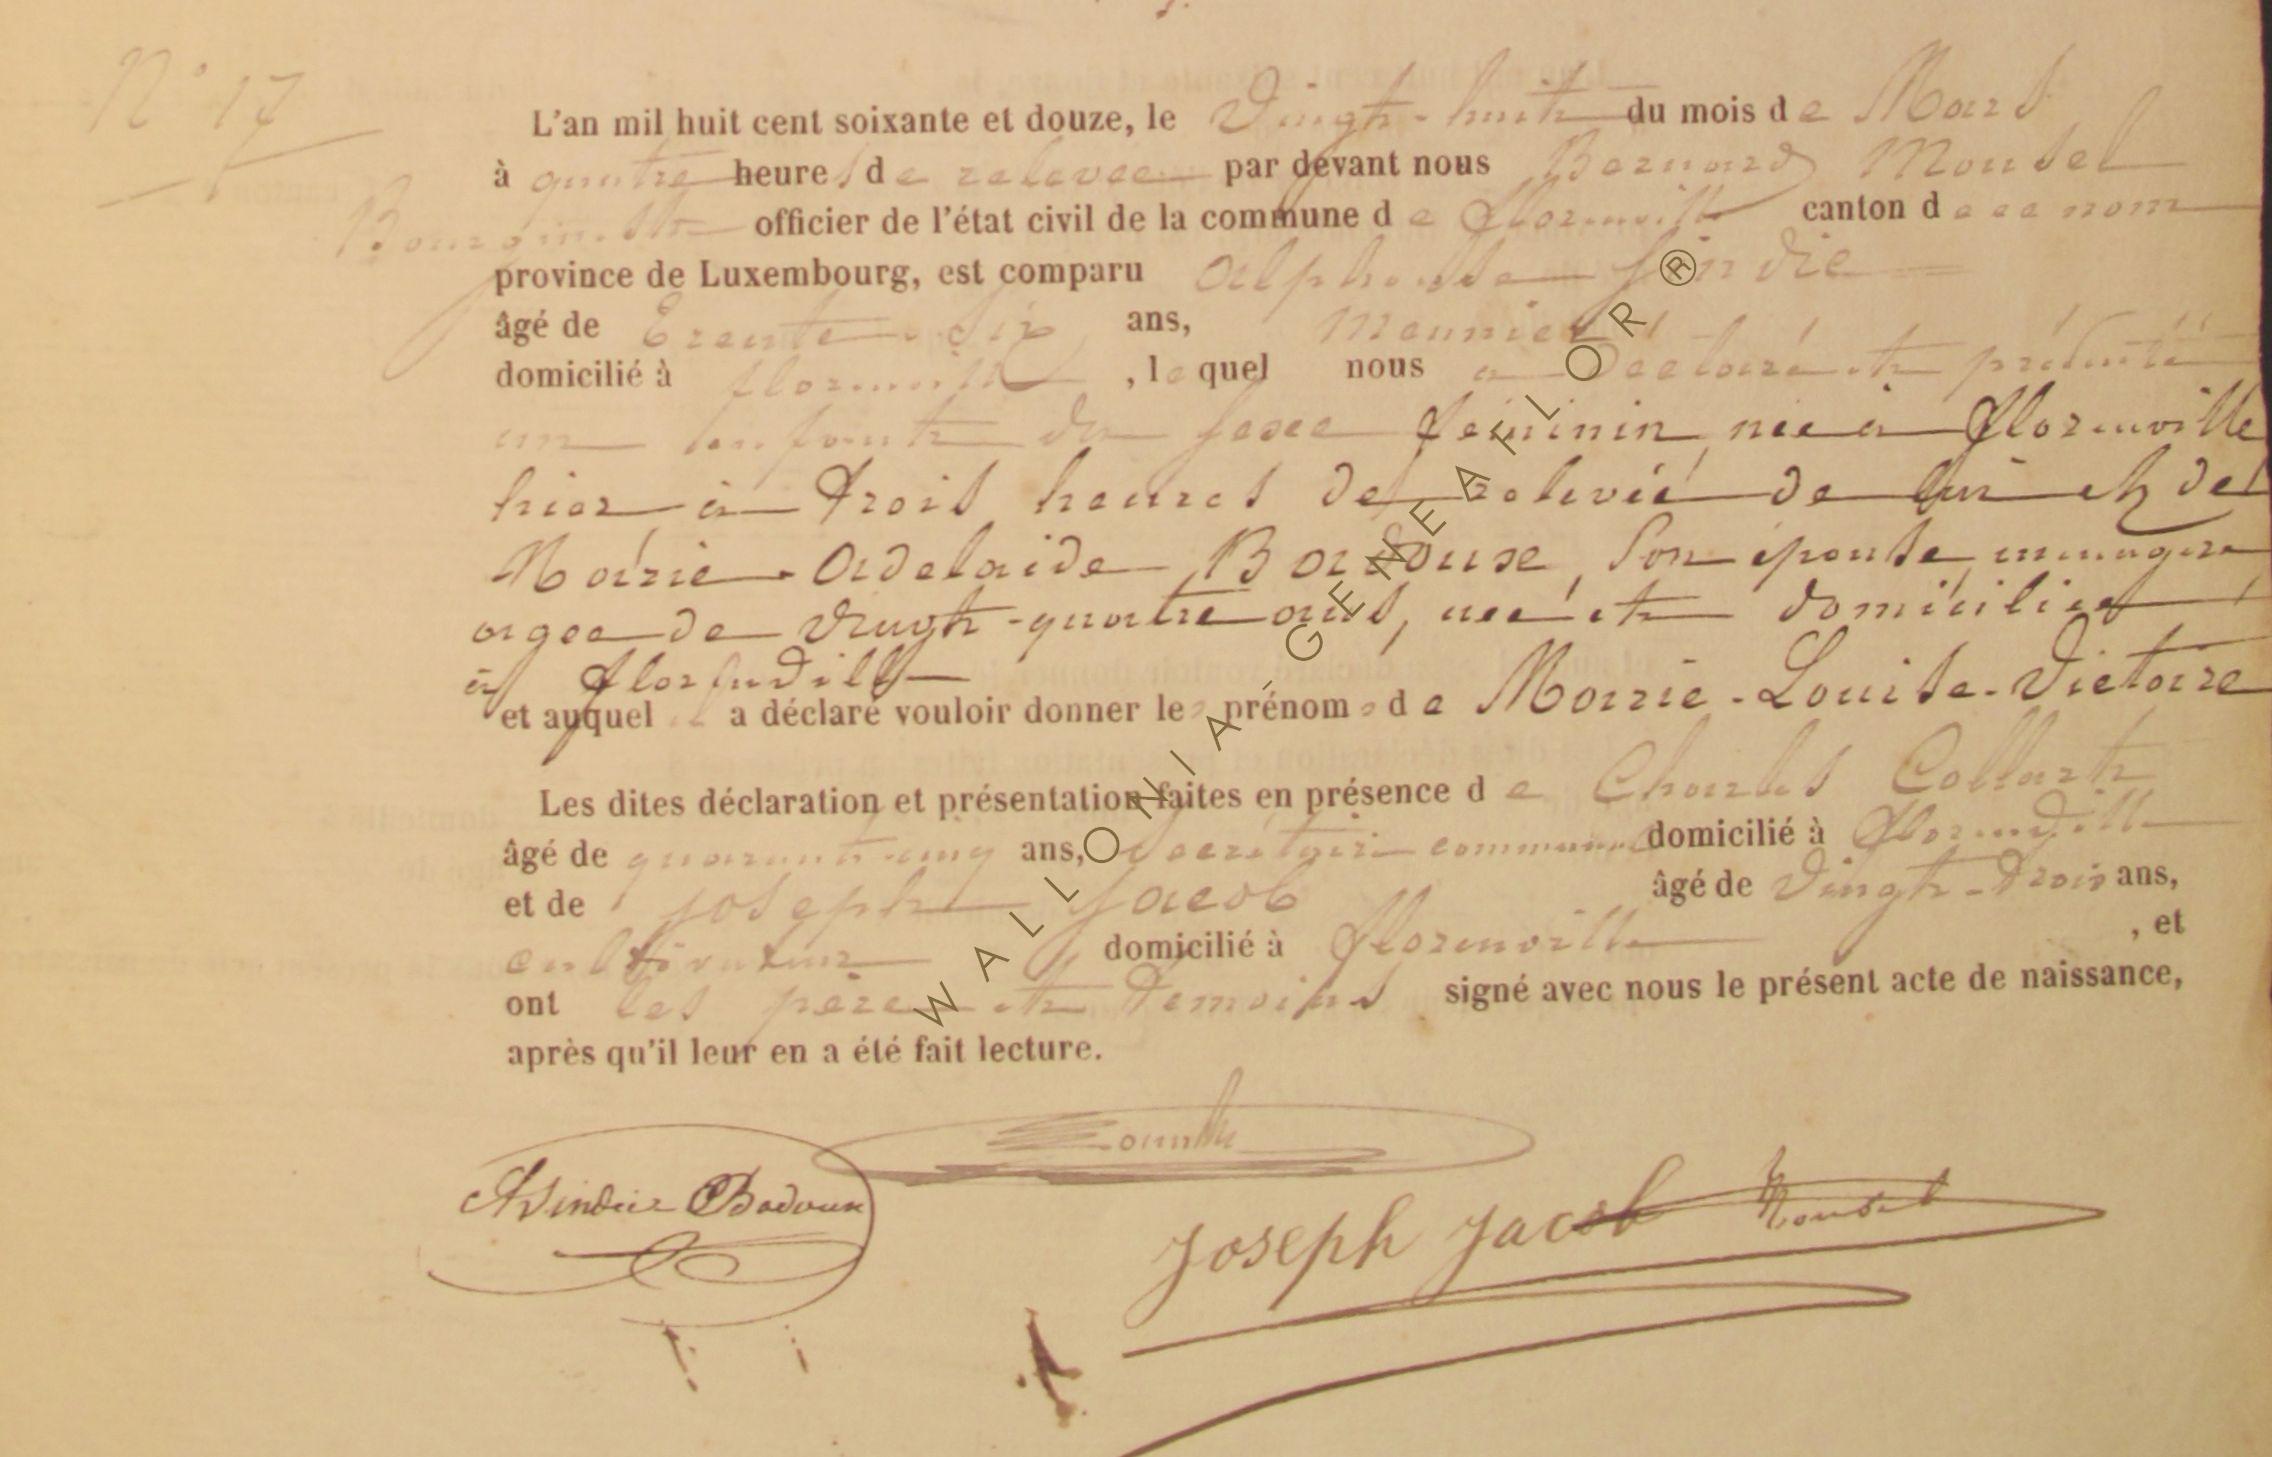 N° 17
L'an mil huit cent soixante et douze, le Vingt-huit du mois de Mars
à quatre heures de relevée par devant nous Bernard Mousel
Bourgmestre officier de l'état civil de la commune de florenville canton de ce nom
province de Luxembourg, est comparu Alphonse Sindic
âgé de Trente-Six ans, Meunier
domicilié à florenville, lequel nous a déclaré et présenté
un enfant du sexe féminin née à florenville
hier à trois heures de relevée de lui et de
Marie-Adelaide Badoux, son épouse, ménagère
agée de vingt-quatre ans, née et domiciliée
à florenville
et auquel il a déclaré vouloir donner les prénoms de Marie-Louise-Victoire
Les dites déclaration et présentation faites en présence de Charles Collart
âgé de quarante-cinq ans, secrétaire communal domicilié à florenville
et de joseph jacob âgé de Vingt-trois ans,
cultivateur domicilié à florenville, et
ont les père et temoins signé avec nous le présent acte de naissance,
après qu'il leur en a été fait lecture.
ASindic Badoux
Joseph Jacob Mousel
WALLONIA - GENEAFLOR ®